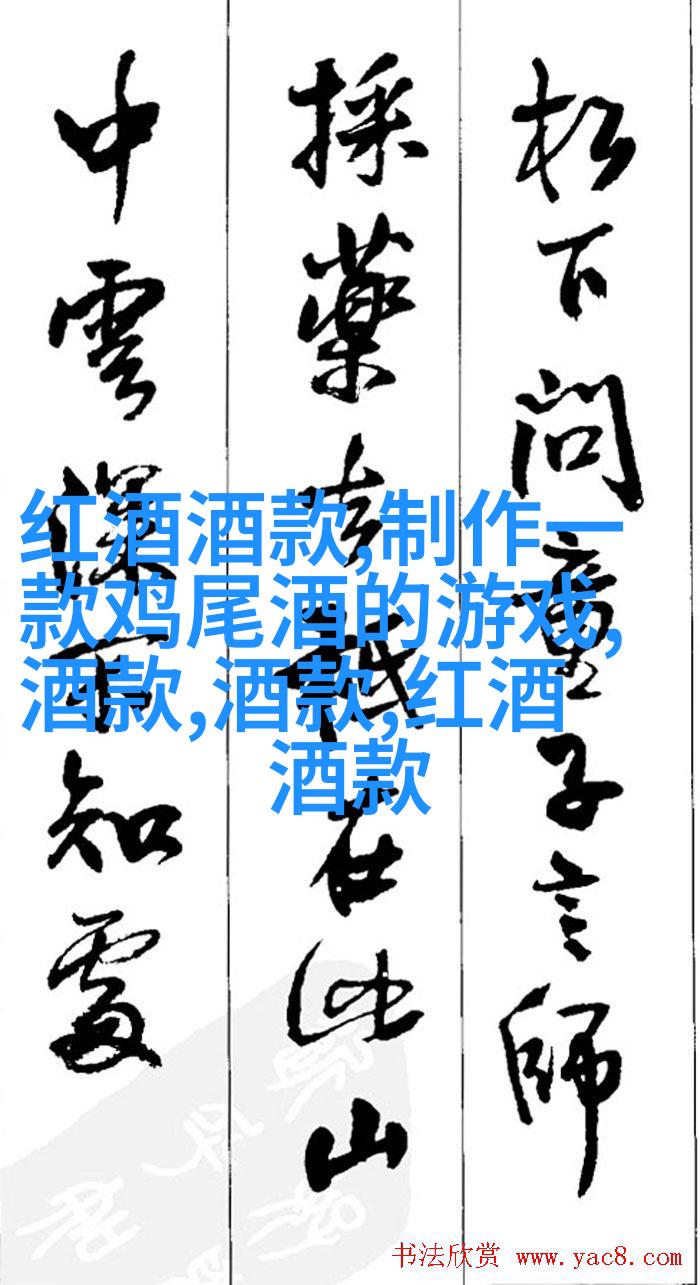 松下問童子言師
採藥去祇在此山
中雲深不知處
红酒酒款,制作一
款鸡尾酒的游戏,
酒款,酒款,红酒
酒款
书法欣赏 www.yac8.com